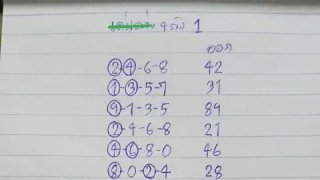 เด่นล่าง 4 ตัว 1
ออก
2-4-6-8 42
1-3-5-7 31
9-1-3-5 89
2-4-6-8 21
4-6-8-0 46
8-0-2-4 28